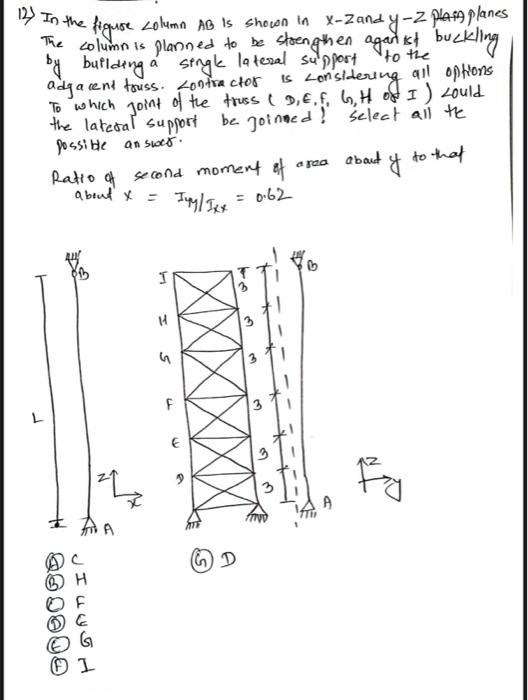 12) In the figure column AB Is shown in x-z and y-z planes
The column is planned to be strengthen against buckling
by building a single lateral support to the
adjacent truss. contractor is considering all options
To which joint of the truss (D,E,F,G,H or I) could
the lateral support be joinned? select all the
possible answer.
Ratio of second moment of area about y to that
about x = Iyy/Ixx = 0.62
B
I
3
B
H
3
G
3
L
F
3
E
3
D
3
z
x
z
y
A
A
A C
B H
C F
D E
E G
F I
G D